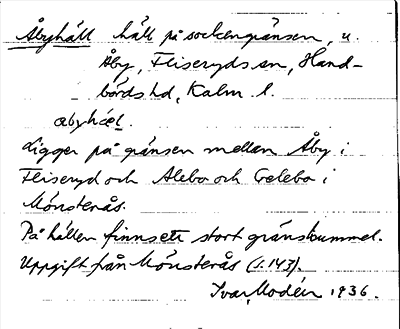 Åbyhäll häll på sockengränsen, u.
Åby, Fliseryds sn, Hand-
börds hd, Kalm. l.
abyhæl.
Ligger på gränsen mellan Åby i
Fliseryd och Alebo och Celebo i
Mönsterås.
På hällen finns ett stort gränskummel.
Uppgift från Mönsterås (s. 143).
Ivar Modéer 1936.